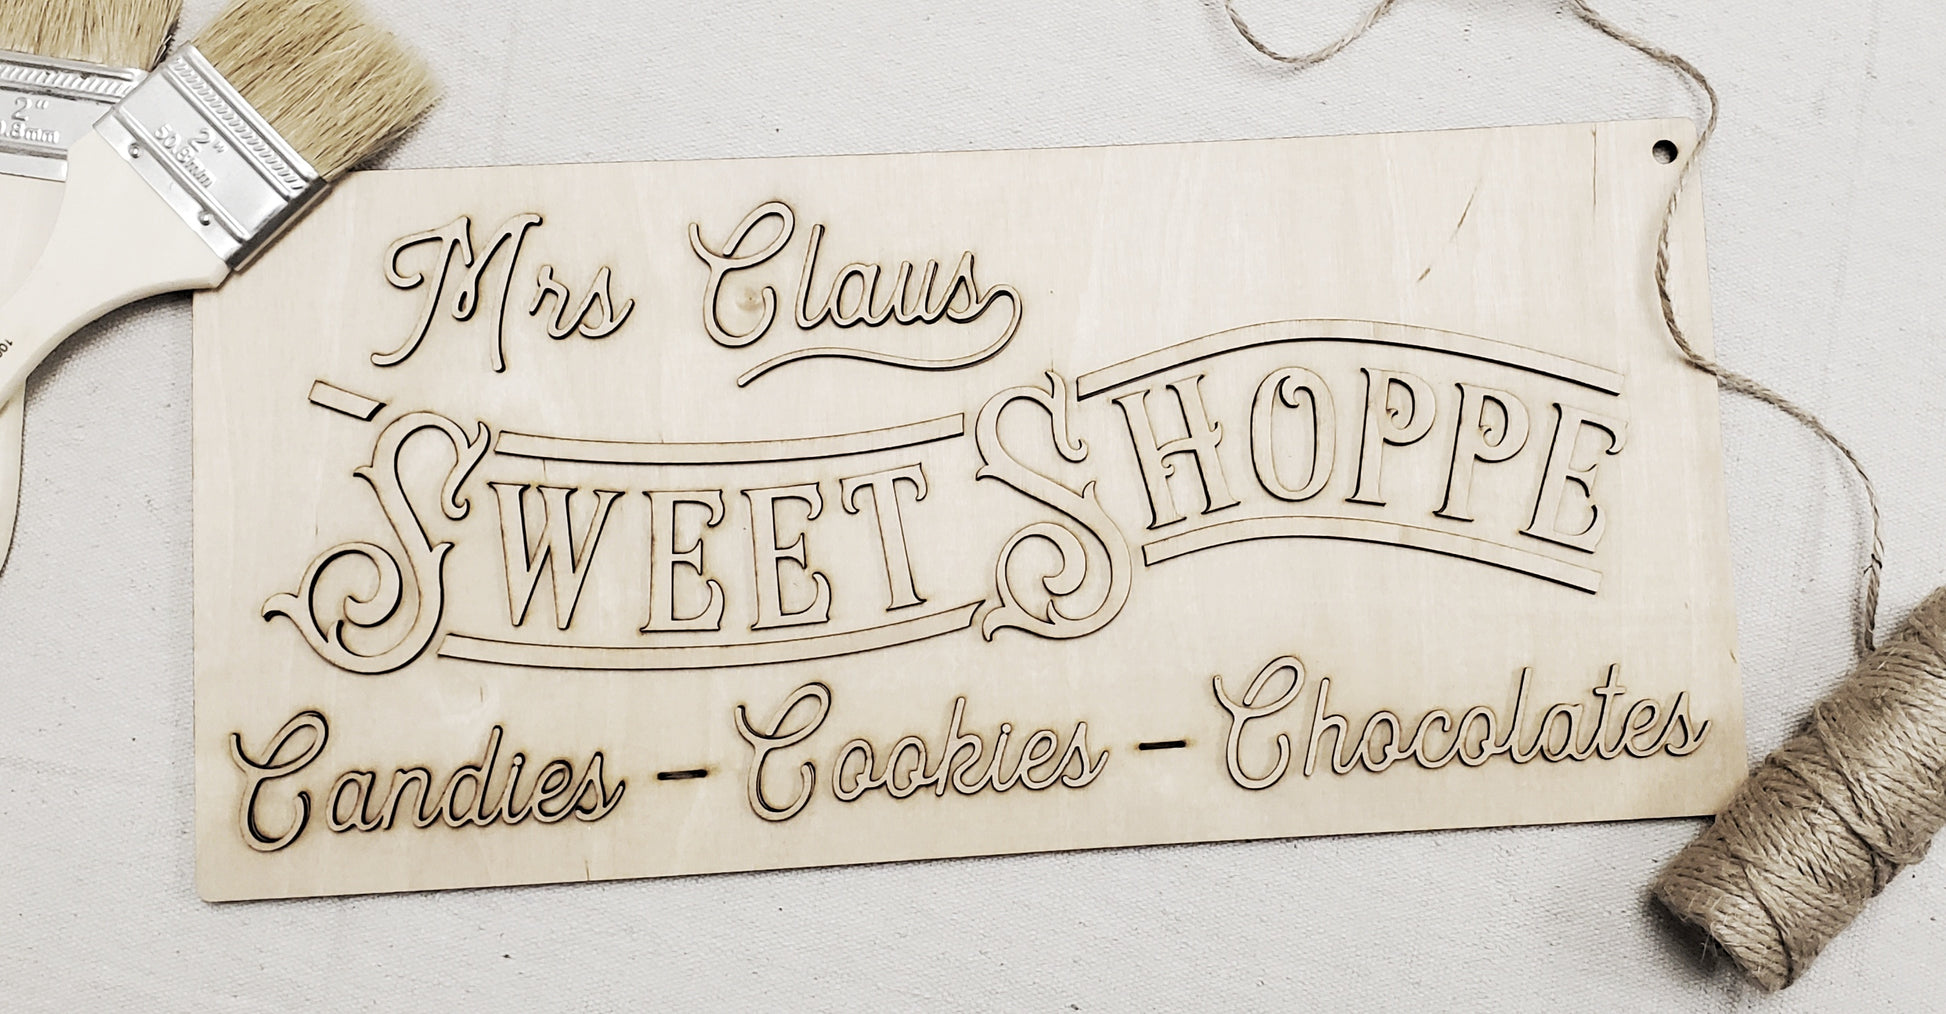 2"
0.8mm
2"
50.8mm
Mrs Claus
SWEET SHOPPE
Candies - Cookies - Chocolates